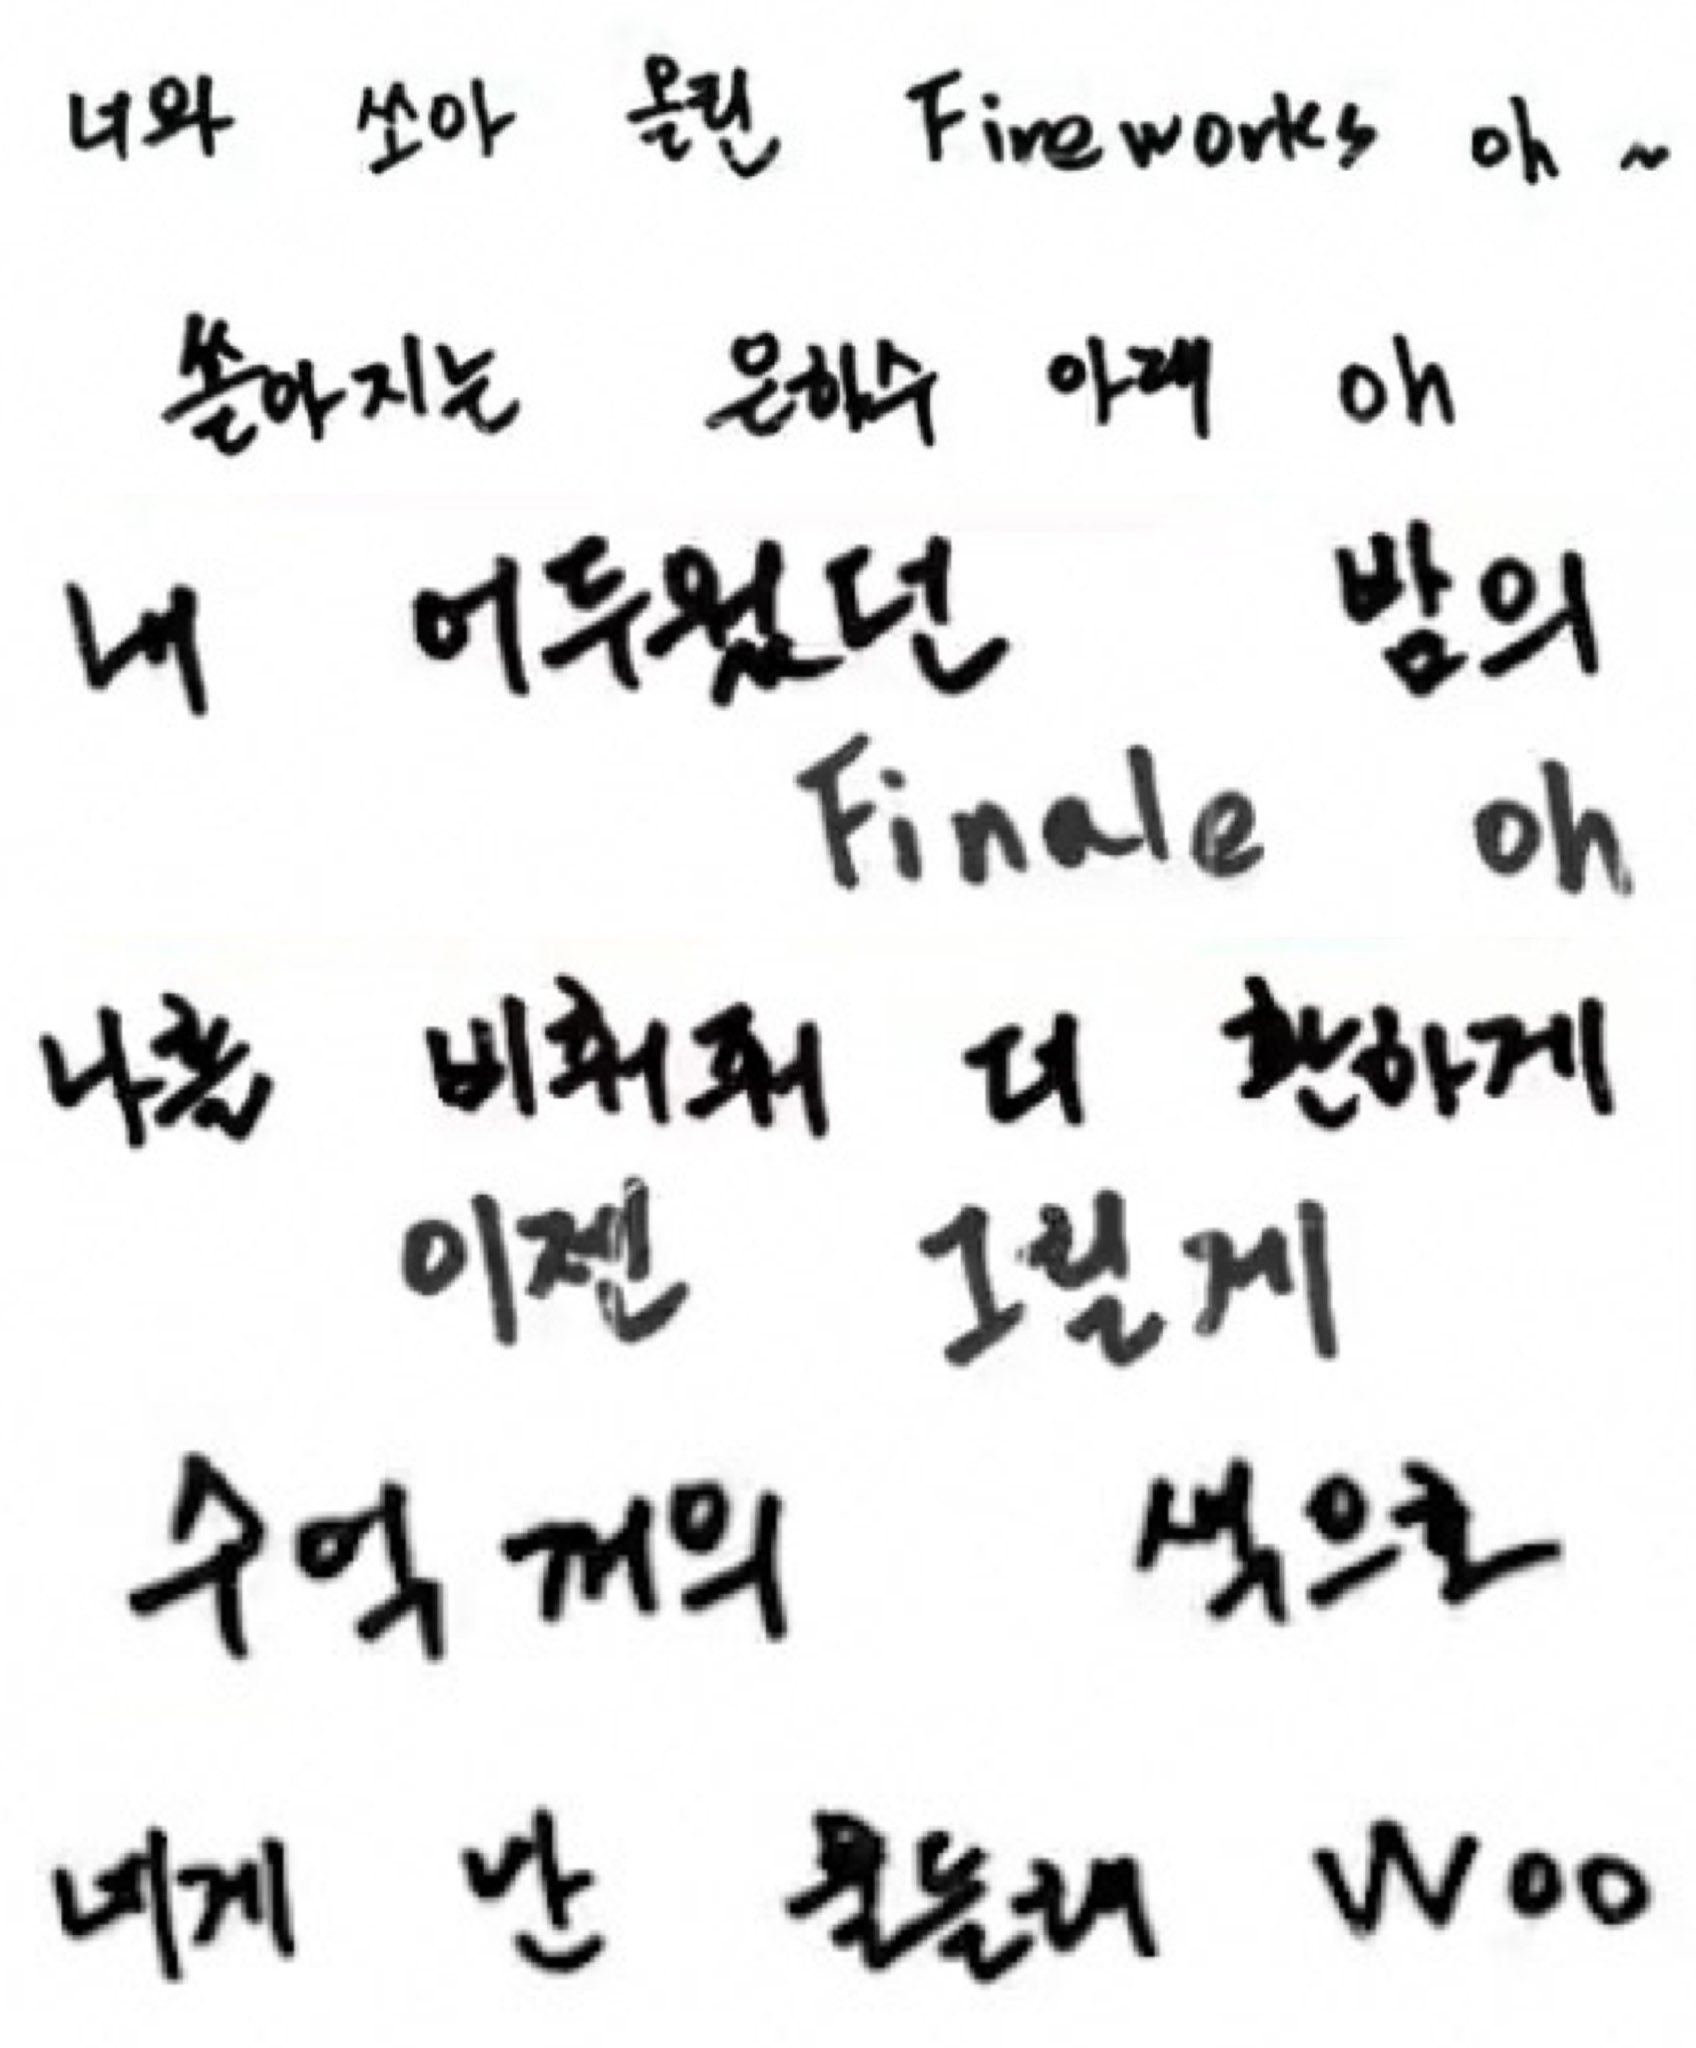 너와 쏘아 올린 Fireworks oh ~
쏟아지는 은하수 아래 oh
내 어두웠던 밤의
Finale oh
나를 비춰줘 더 환하게
이젠 그릴게
수억 개의 색으로
네게 난 물들래 Woo